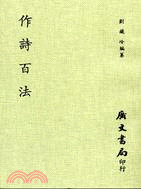 作詩百法
劉鐵冷編纂
廣文書局印行